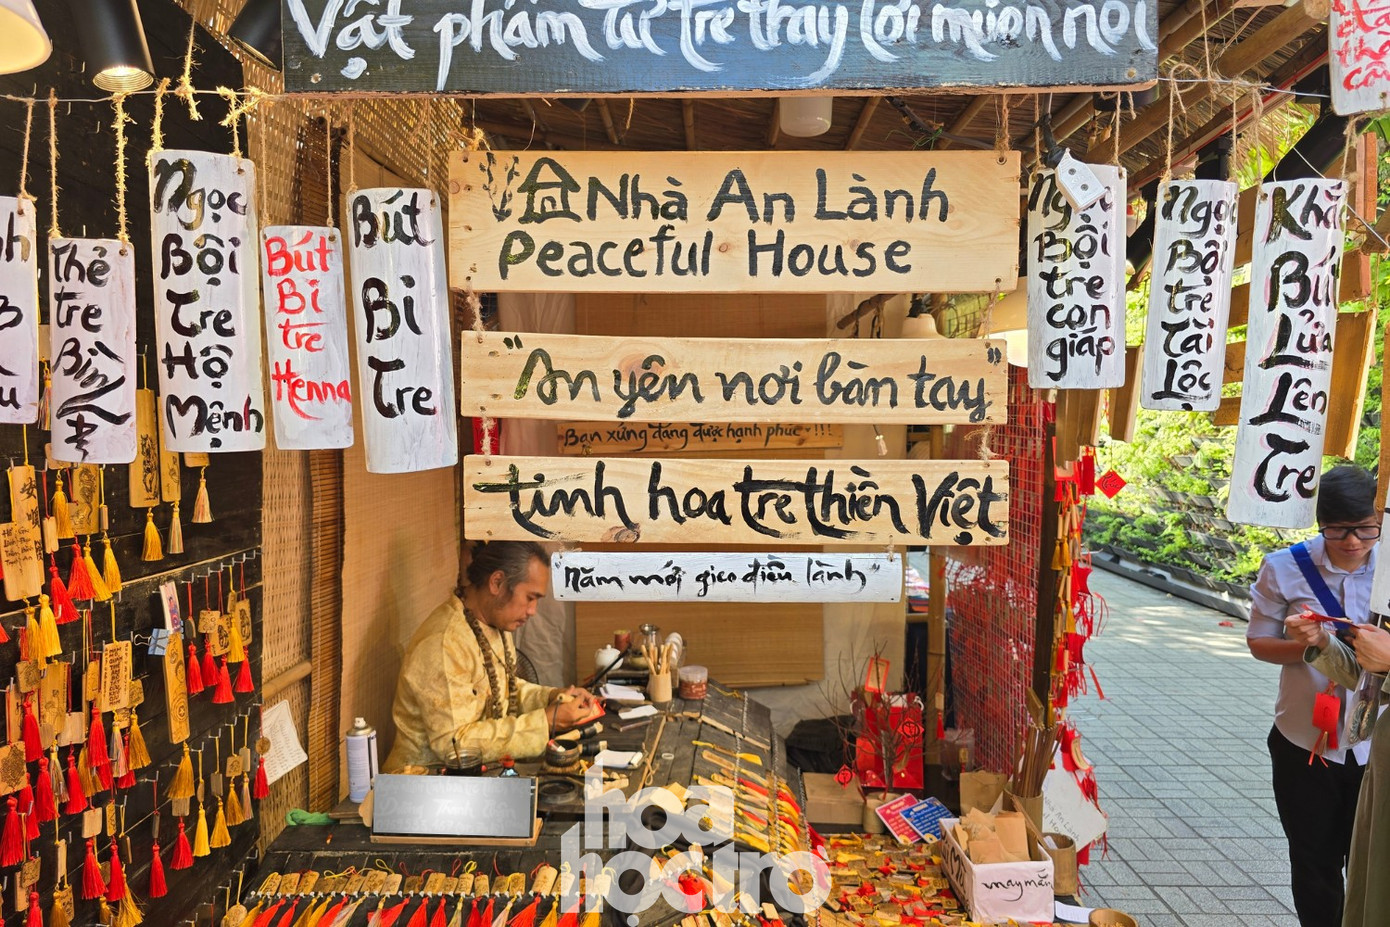 Vật phẩm từ tre thay lời muốn nói
Thẻ
tre
Bình
An
Ngọc
Bội
Tre
Hộ
Mệnh
Bút
Bi
tre
Henna
Bút
Bi
Tre
Nhà An Lành
Peaceful House
"An yên nơi bàn tay"
Bạn xứng đáng được hạnh phúc !!!
tinh hoa tre thiền Việt
"Năm mới gieo điều lành"
Ngọc
Bội
tre
con
giáp
Ngọc
Bội
tre
Tài
Lộc
Khắc
Bút
Lửa
Lên
Tre
may mắn
hoa
học
trò